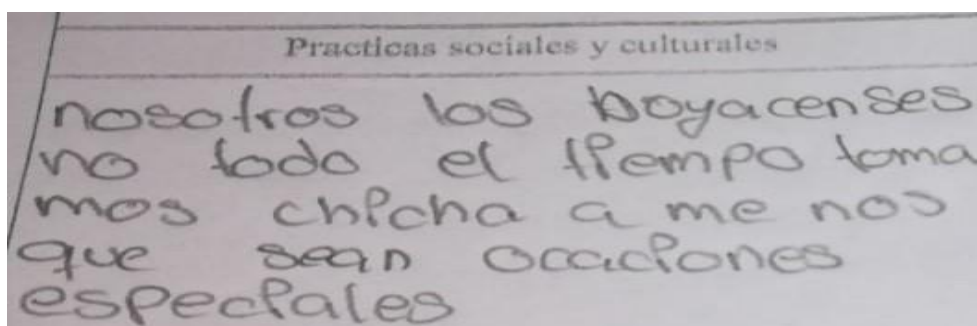 Practicas sociales y culturales
nosotros los boyacenses
no todo el tiempo toma
mos chicha a me nos
que sean ocaciones
especiales